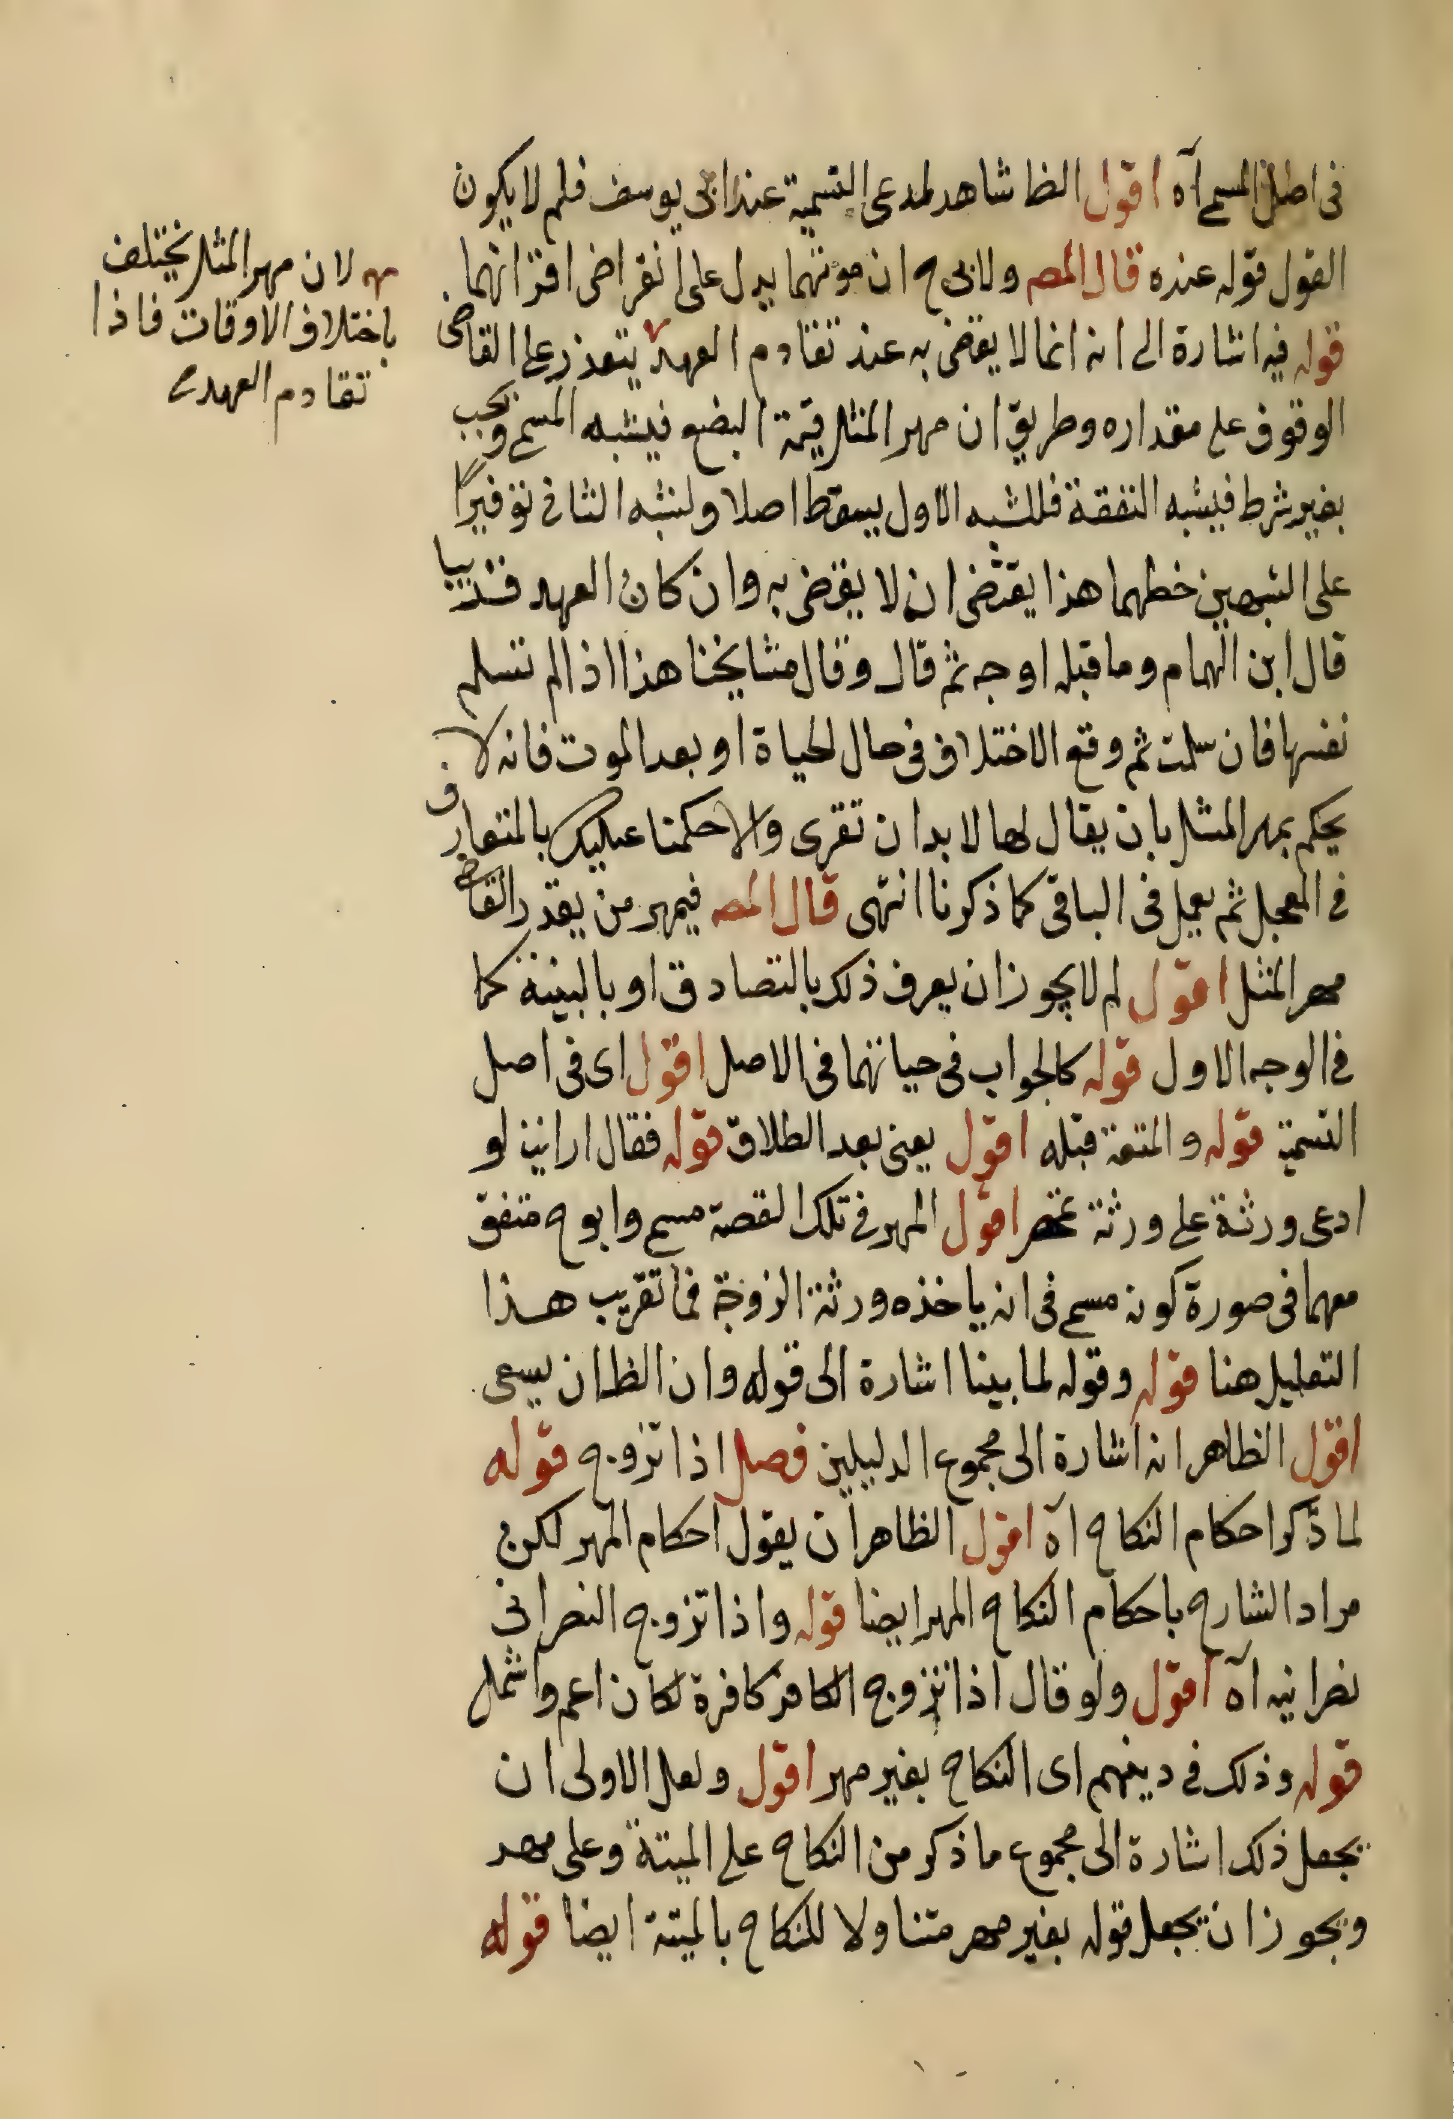 في اصل المسمى آه اقول الظ شاهد لمدعى التسمية عند ابى يوسف فلم لا يكون
القول قوله عنده قال المص ولابى ح ان موتهما يدل على انقراض اقرانهما
قوله فيه اشارة الى انه انما لا يقضى به عند تقادم العهد يتعذر على القاضى
الوقوف على مقداره وطريق ان مهر المثل قيمة البضع فيشبه المسمى ويجب
بغير شرط فيشبه النفقة فللشبه الاول يسقط اصلا ولشبه الثانى توفيرا
على الشبهين خطهما هذا يقتضى ان لا يقضى به وان كان العهد قريبا
قال ابن الهمام وما قبله اوجه ثم قال وقال مشايخنا هذا اذا لم تسلم
نفسها فان سلمت ثم وقع الاختلاف فى حال الحياة او بعد الموت فانه لا
يحكم بمهر المثل بان يقال لها لا بد ان تقرى والا حكمنا عليك بالمتعارف
فى المعجل ثم يعمل فى الباقى كما ذكرنا انتهى قال المص فبمهر من يقدر القاضى
مهر المثل اقول لم لا يجوز ان يعرف ذلك بالتصادق او بالبينة كما
فى الوجه الاول قوله كالجواب فى حياتهما فى الاصل اقول اى فى اصل
التسمية قوله والمتعة قبله اقول يعنى بعد الطلاق قوله فقال ارايت لو
ادعى ورثة على ورثة عمر اقول المهر فى تلك القصة مسمى وابو ح متفق
معهما فى صورة كونه مسمى فى انه ياخذه ورثة الزوجة فما تقريب هذا
التعليل هنا قوله وقوله لما بينا اشارة الى قوله وان الظ ان يسعى
اقول الظاهر انه اشارة الى مجموع الدليلين فصل اذا تزوج قوله
لما ذكر احكام النكاح آه اقول الظاهر ان يقول احكام المهر لكن
مراد الشارح باحكام النكاح المهر ايضا قوله واذا تزوج النصرانى
نصرانيه آه اقول ولو قال اذا تزوج الكافر كافرة لكان اعم واشمل
قوله وذلك فى دينهم اى النكاح بغير مهر اقول ولعل الاولى ان
يجعل ذلك اشارة الى مجموع ما ذكر من النكاح على الميتة وعلى مهر
ويجوز ان يجعل قوله بغير مهر متناولا للنكاح بالميتة ايضا قوله
لان مهر المثل يختلف
باختلاف الاوقات فاذا
تقادم العهد